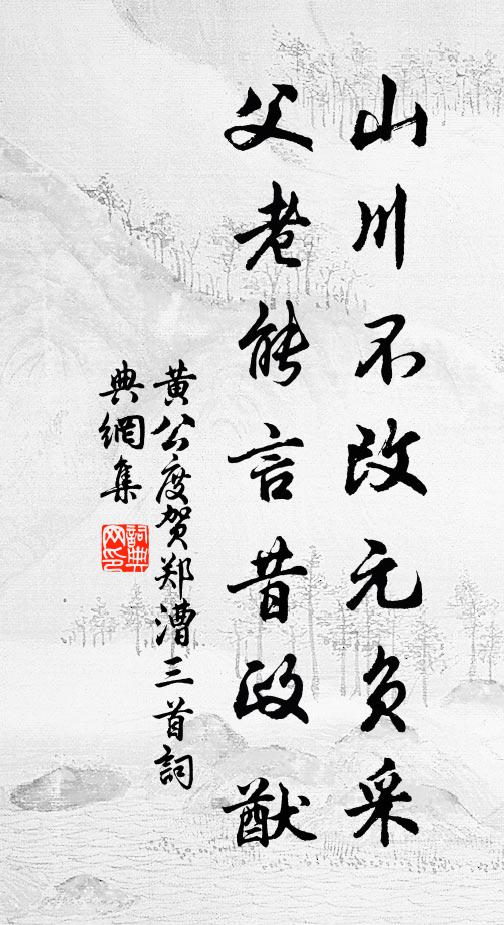 山川不改元负采
父老能言昔政猷
黄公度贺郑漕三首詞
典網集
詞典网印